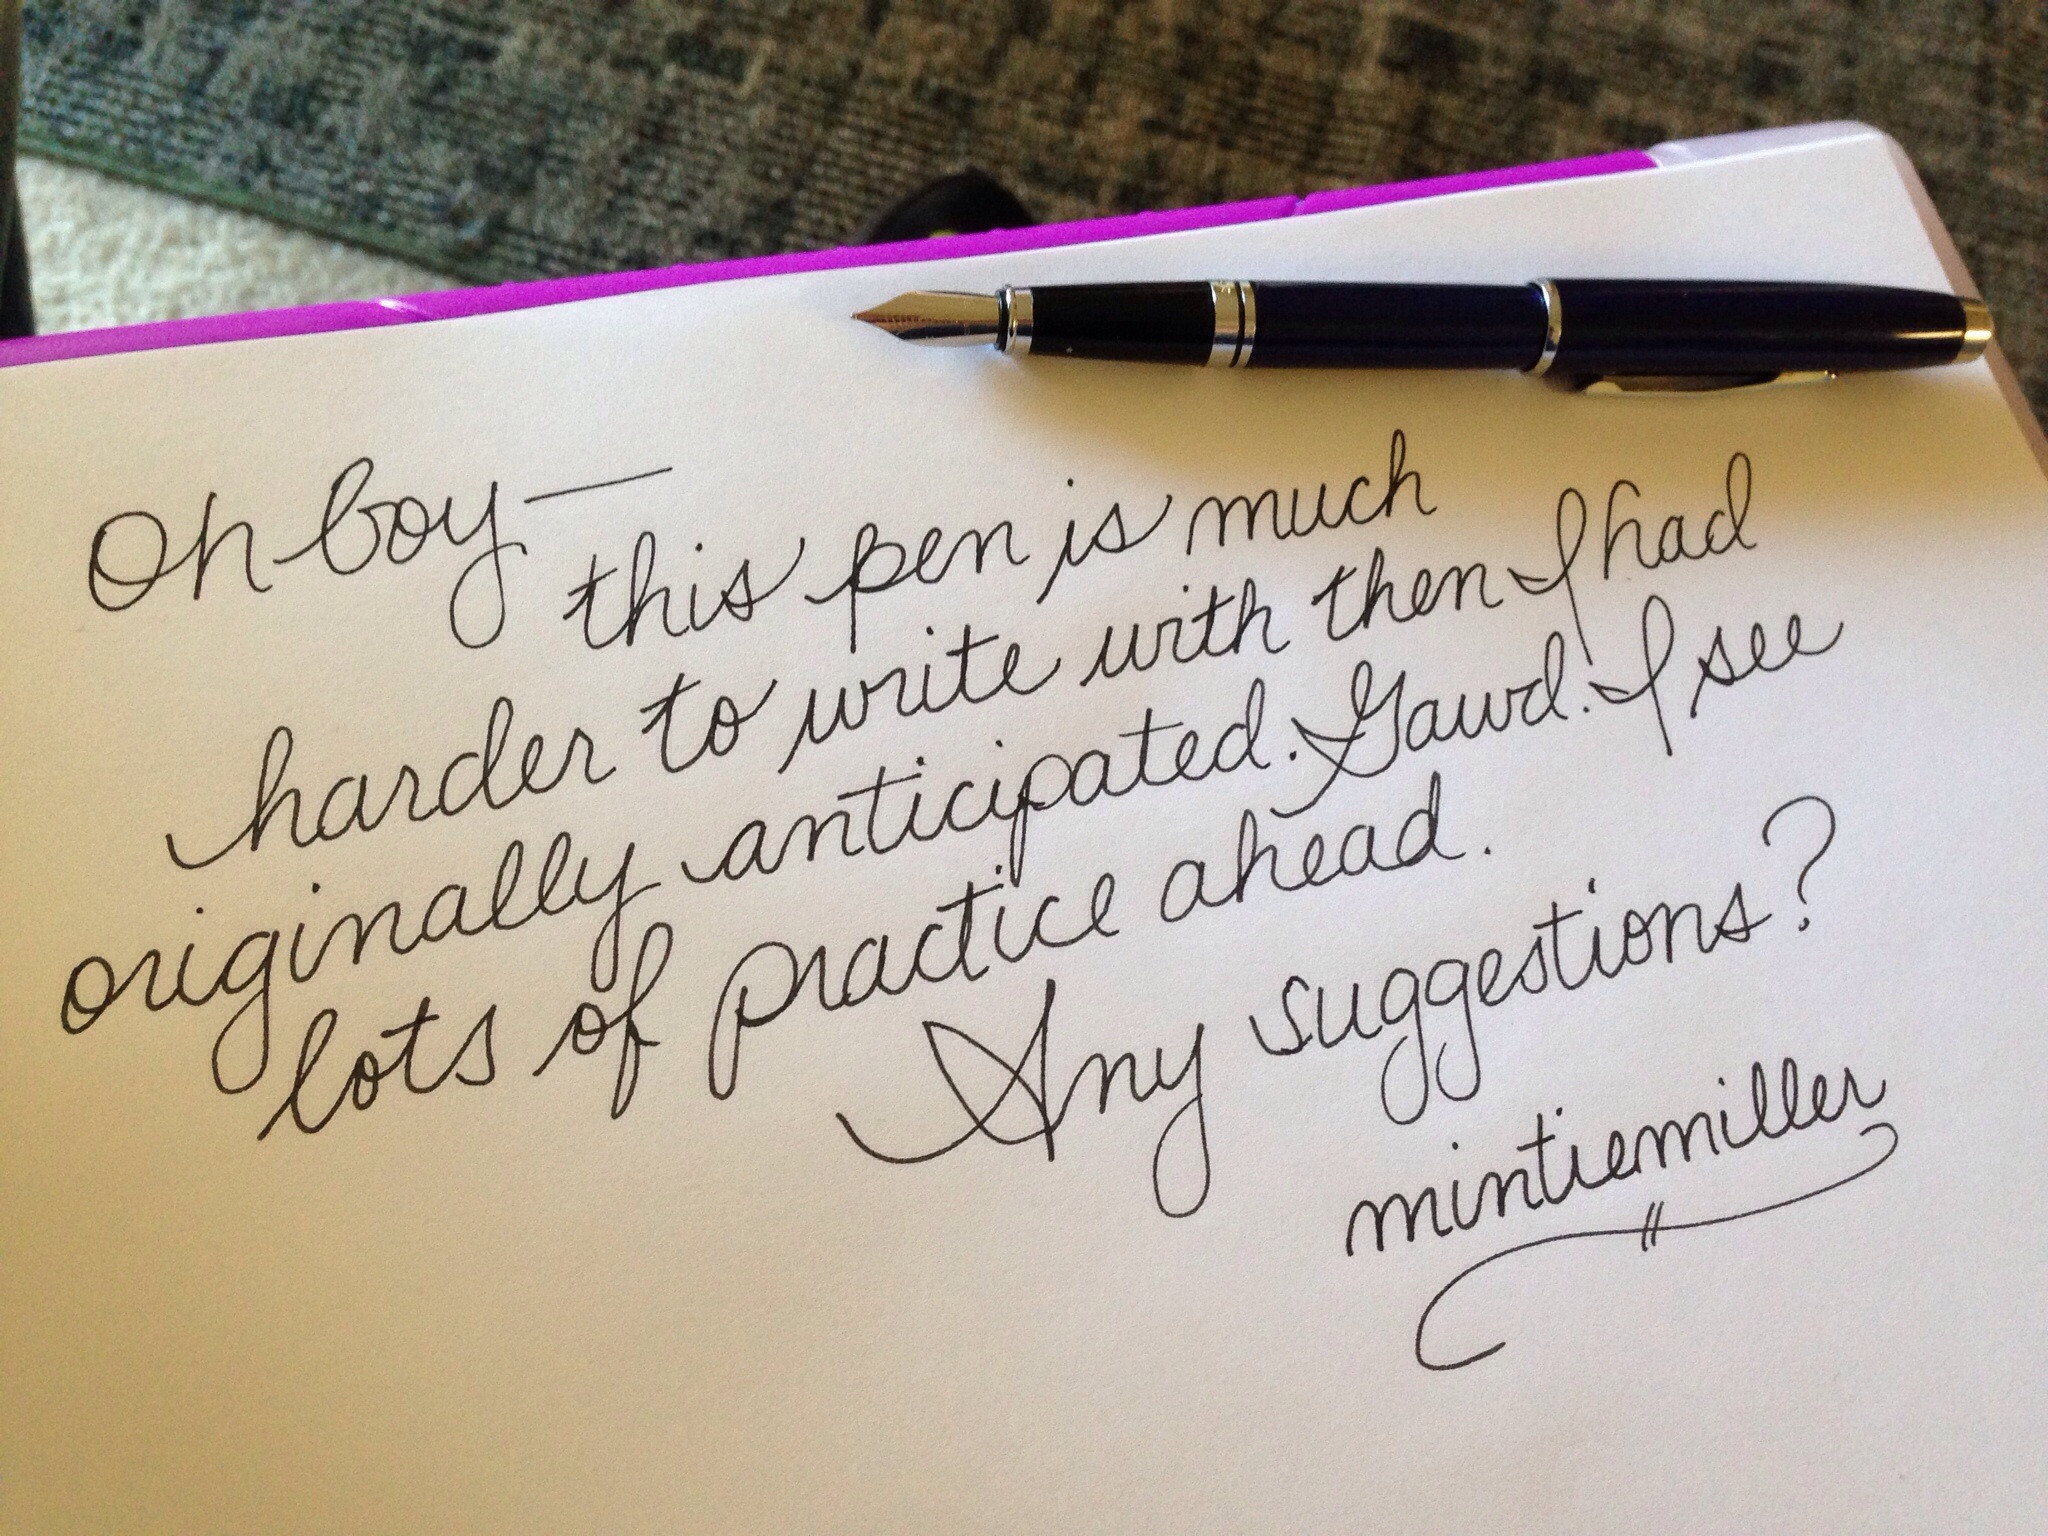 Oh boy—
this pen is much
harder to write with then I had
originally anticipated. Gawd. I see
lots of practice ahead.
Any suggestions?
mintiemiller